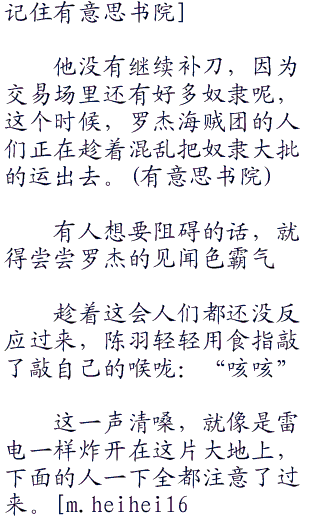 记住有意思书院]
他没有继续补刀，因为
交易场里还有好多奴隶呢，
这个时候，罗杰海贼团的人
们正在趁着混乱把奴隶大批
的运出去。(有意思书院)
有人想要阻碍的话，就
得尝尝罗杰的见闻色霸气
趁着这会人们都还没反
应过来，陈羽轻轻用食指敲
了敲自己的喉咙：“咳咳”
这一声清嗓，就像是雷
电一样炸开在这片大地上，
下面的人一下全都注意了过
来。[m.heihei16